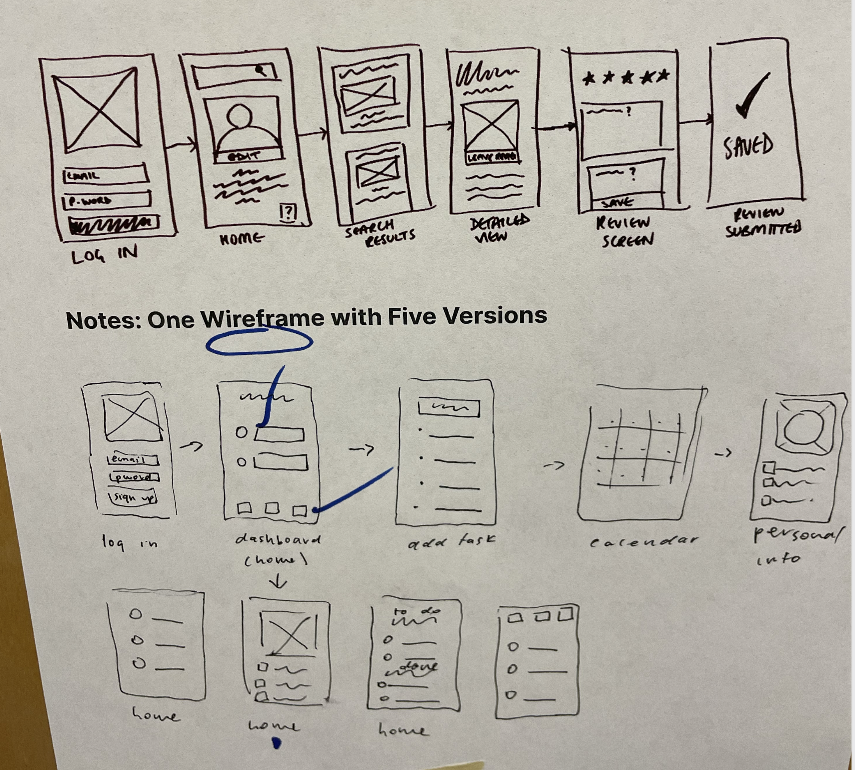 EMAIL
P-WORD
LOG IN
EDIT
?
HOME
SEARCH
RESULTS
LEAVE
DETAILED
VIEW
?
?
SAVE
REVIEW
SCREEN
SAVED
REVIEW
SUBMITTED
Notes: One Wireframe with Five Versions
email
pword
sign up
log in
dashboard
(home)
add task
calendar
personal
info
home
home
to do
done
home